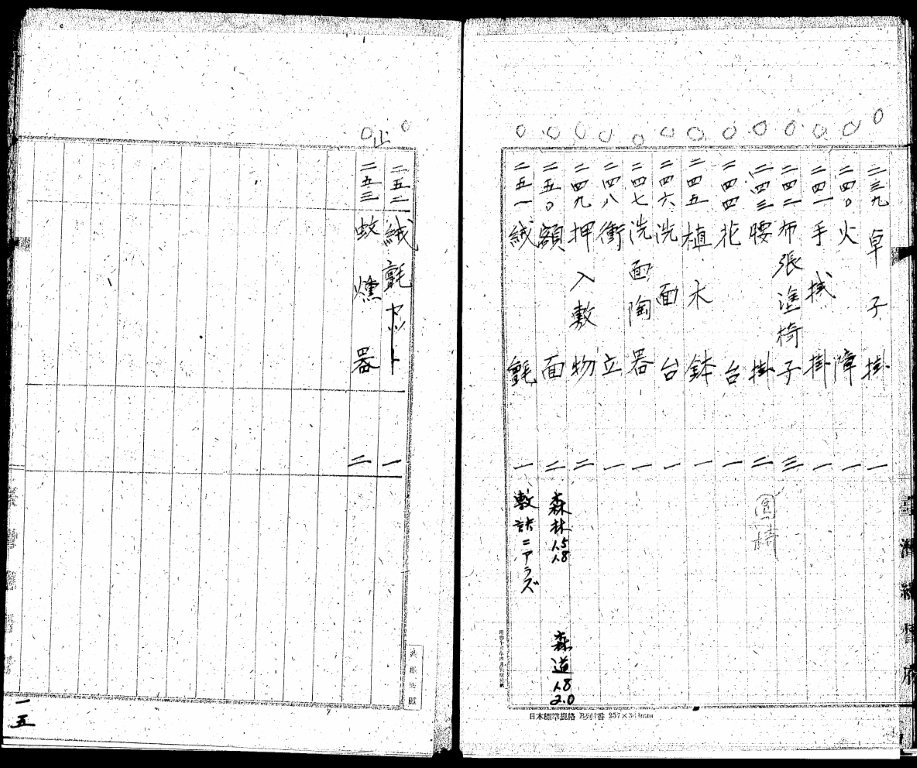 二三九 卓子掛 一
二四〇 火障 一
二四一 手拭掛 一
二四二 布張塗椅子 三
二四三 腰掛 二 圓椅
二四四 花台 一
二四五 植木鉢 一
二四六 洗面台 一
二四七 洗面陶器 一
二四八 衝立 一
二四九 押入敷物 二
二五〇 額面 二 森林 1.5 1.8 森道 1.8 2.0
二五一 絨氈 一 敷詰ニアラズ
臺灣總督府
日本標準規格 257×364mm
二五二 絨氈カット 一
二五三 蚊燻器 二
山
一五